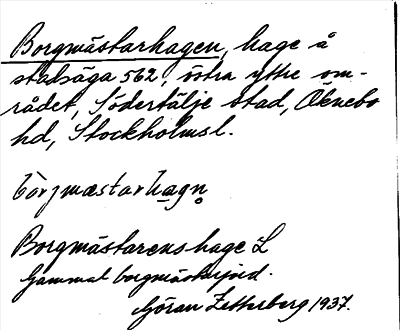 Borgmästarhagen, hage å
stadsäga 562, östra yttre om-
rådet, Södertälje stad, Öknebo
hd, Stockholmsl.
bòrjmæstarhagn̥
Borgmästarens hage L
Gammal borgmästarjord.
Göran Zetterberg 1937.